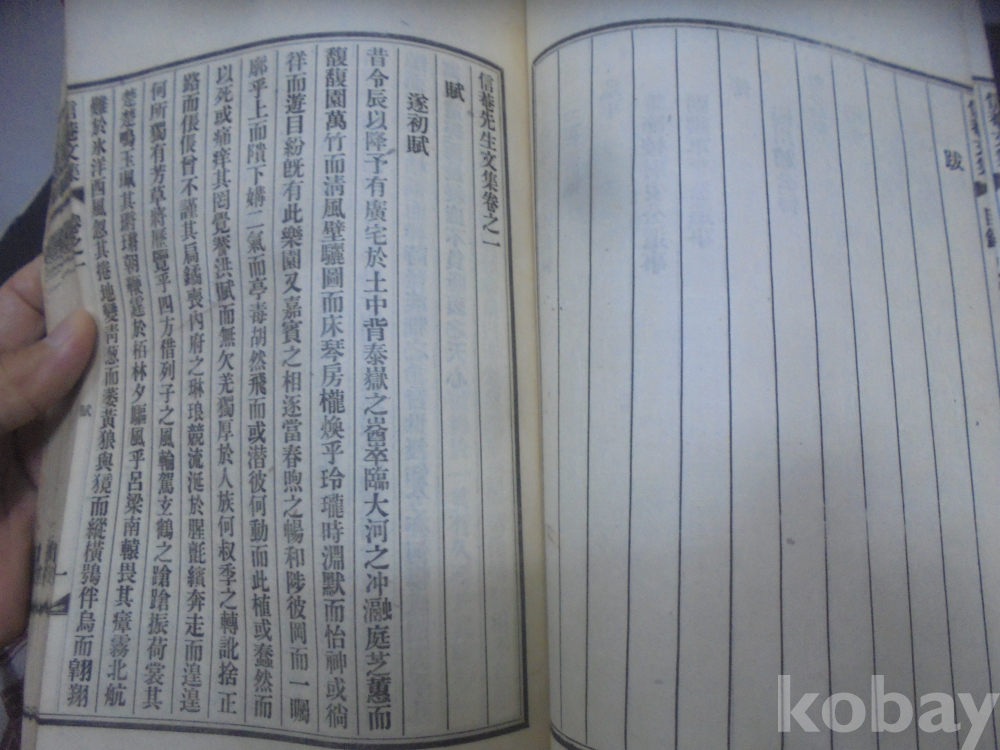 跋
信菴先生文集卷之一
賦
遂初賦
昔令辰以降予有廣宅於土中背泰嶽之崒臨大河之冲瀜庭芝蕙而
馥馥園萬竹而淸風壁驪圖而床琴房櫳煥乎玲瓏時淵默而怡神或徜
祥而遊目紛旣有此樂園又嘉賓之相逐當春煦之暢和陟彼岡而一矚
廓乎上而隤下媾二氣而亭毒胡然飛而或潛彼何動而此植或蠢然而
以死或痛痒其罔覺洪賦而無欠羌獨厚於人族何叔季之轉訛捨正
路而倀倀曾不謹其扃鐍喪內府之琳琅競流涎於腥氈繽奔走而遑遑
何所獨有芳草將歷覽乎四方借列子之風輪駕玄鶴之蹌蹌振荷裳其
楚楚鳴玉珮其鏘鏘朝鞭霆於栢林夕驅風乎呂梁南轅畏其瘴霧北航
難於氷洋西風其捲地變靑葱而萎黃狼與獍而縱橫鴞伴烏而翶翔
信菴文集 卷之一 賦 一
kobay